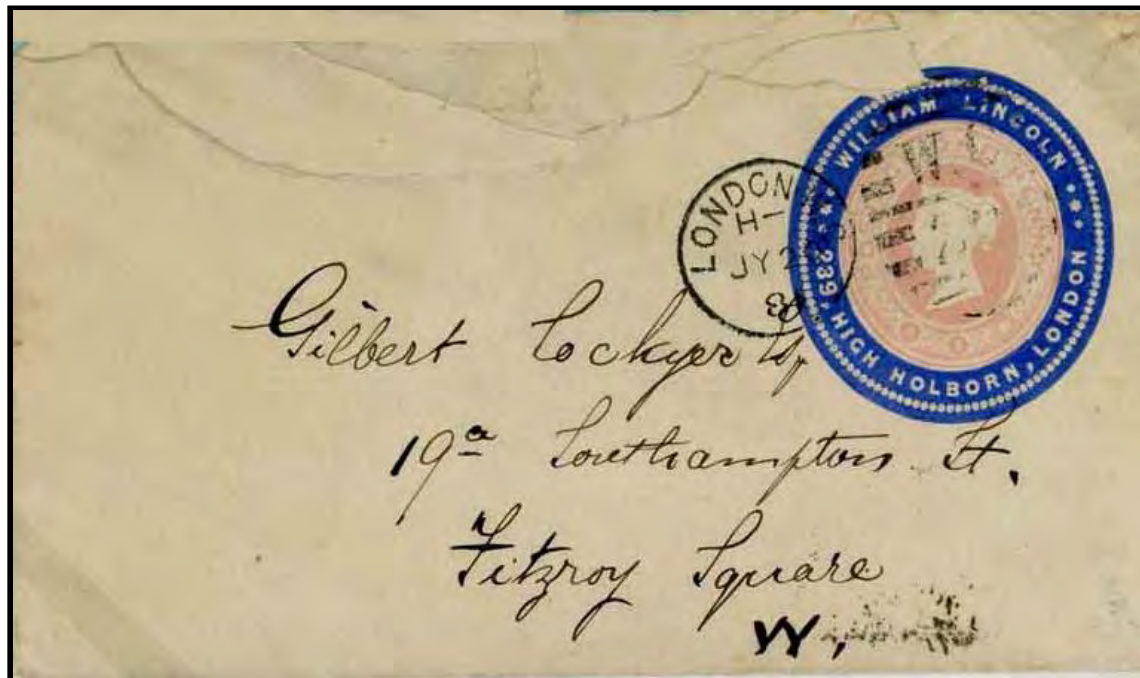 WILLIAM LINCOLN
239, HIGH HOLBORN, LONDON
LONDON W
H
JY 2
93
Gilbert Lockyer Esq
19a Southampton St.
Fitzroy Square
W.